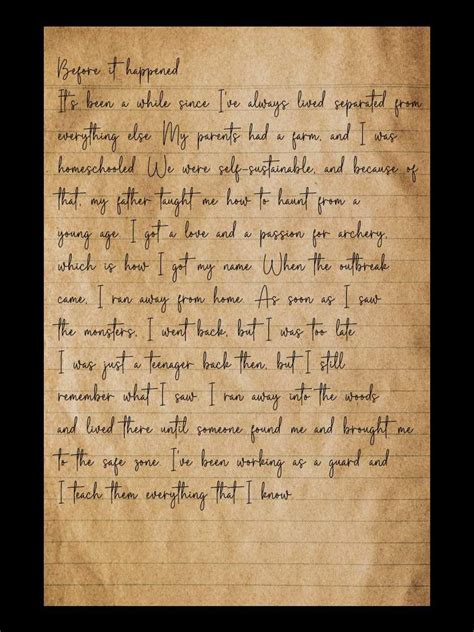 Before it happened
It's been a while since I've always lived separated from
everything else. My parents had a farm, and I was
homeschooled. We were self-sustainable, and because of
that, my father taught me how to haunt from a
young age. I got a love and a passion for archery,
which is how I got my name. When the outbreak
came, I ran away from home. As soon as I saw
the monsters, I went back, but I was too late.
I was just a teenager back then, but I still
remember what I saw. I ran away into the woods
and lived there until someone found me and brought me
to the safe zone. I've been working as a guard and
I teach them everything that I know.